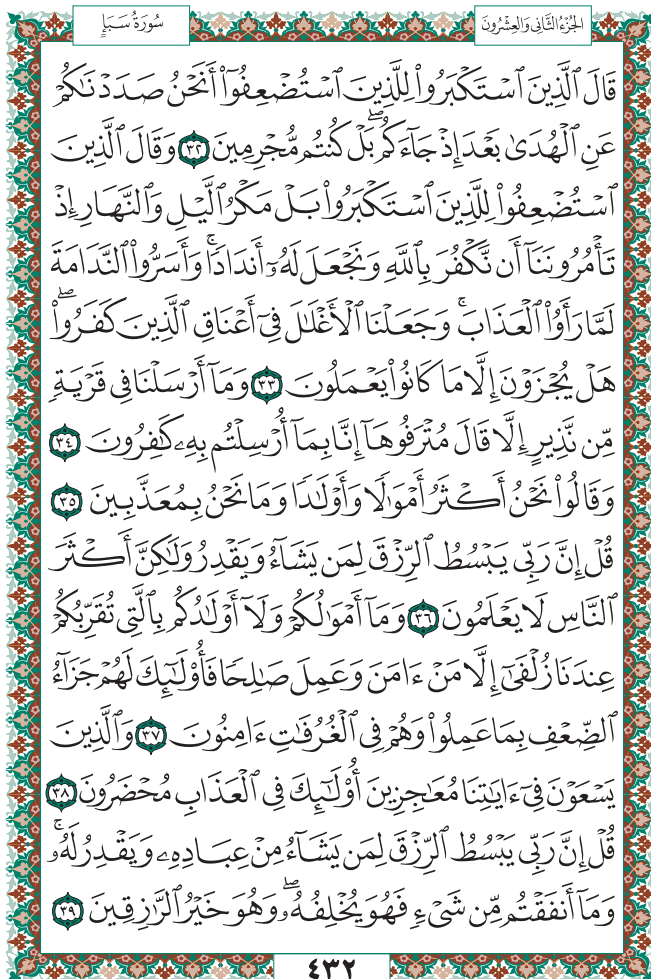 الجُزْءُ الثَّانِي وَالعِشْرُونَ
سُورَةُ سَبَإٍ
قَالَ ٱلَّذِينَ ٱسۡتَكۡبَرُواْ لِلَّذِينَ ٱسۡتُضۡعِفُوٓاْ أَنَحۡنُ صَدَدۡنَٰكُمۡ
عَنِ ٱلۡهُدَىٰ بَعۡدَ إِذۡ جَآءَكُمۖ بَلۡ كُنتُم مُّجۡرِمِينَ ٣٢ وَقَالَ ٱلَّذِينَ
ٱسۡتُضۡعِفُواْ لِلَّذِينَ ٱسۡتَكۡبَرُواْ بَلۡ مَكۡرُ ٱلَّيۡلِ وَٱلنَّهَارِ إِذۡ
تَأۡمُرُونَنَآ أَن نَّكۡفُرَ بِٱللَّهِ وَنَجۡعَلَ لَهُۥٓ أَندَادٗاۚ وَأَسَرُّواْ ٱلنَّدَامَةَ
لَمَّا رَأَوُاْ ٱلۡعَذَابَۚ وَجَعَلۡنَا ٱلۡأَغۡلَٰلَ فِيٓ أَعۡنَاقِ ٱلَّذِينَ كَفَرُواْۖ
هَلۡ يُجۡزَوۡنَ إِلَّا مَا كَانُواْ يَعۡمَلُونَ ٣٣ وَمَآ أَرۡسَلۡنَا فِي قَرۡيَةٖ
مِّن نَّذِيرٍ إِلَّا قَالَ مُتۡرَفُوهَآ إِنَّا بِمَآ أُرۡسِلۡتُم بِهِۦ كَٰفِرُونَ ٣٤
وَقَالُواْ نَحۡنُ أَكۡثَرُ أَمۡوَٰلٗا وَأَوۡلَٰدٗا وَمَا نَحۡنُ بِمُعَذَّبِينَ ٣٥
قُلۡ إِنَّ رَبِّي يَبۡسُطُ ٱلرِّزۡقَ لِمَن يَشَآءُ وَيَقۡدِرُ وَلَٰكِنَّ أَكۡثَرَ
ٱلنَّاسِ لَا يَعۡلَمُونَ ٣٦ وَمَآ أَمۡوَٰلُكُمۡ وَلَآ أَوۡلَٰدُكُم بِٱلَّتِي تُقَرِّبُكُمۡ
عِندَنَا زُلۡفَىٰٓ إِلَّا مَنۡ ءَامَنَ وَعَمِلَ صَٰلِحٗا فَأُوْلَٰٓئِكَ لَهُمۡ جَزَآءُ
ٱلضِّعۡفِ بِمَا عَمِلُواْ وَهُمۡ فِي ٱلۡغُرُفَٰتِ ءَامِنُونَ ٣٧ وَٱلَّذِينَ
يَسۡعَوۡنَ فِيٓ ءَايَٰتِنَا مُعَٰجِزِينَ أُوْلَٰٓئِكَ فِي ٱلۡعَذَابِ مُحۡضَرُونَ ٣٨
قُلۡ إِنَّ رَبِّي يَبۡسُطُ ٱلرِّزۡقَ لِمَن يَشَآءُ مِنۡ عِبَادِهِۦ وَيَقۡدِرُ لَهُۥۚ
وَمَآ أَنفَقۡتُم مِّن شَيۡءٖ فَهُوَ يُخۡلِفُهُۥۖ وَهُوَ خَيۡرُ ٱلرَّٰزِقِينَ ٣٩
٤٣٢